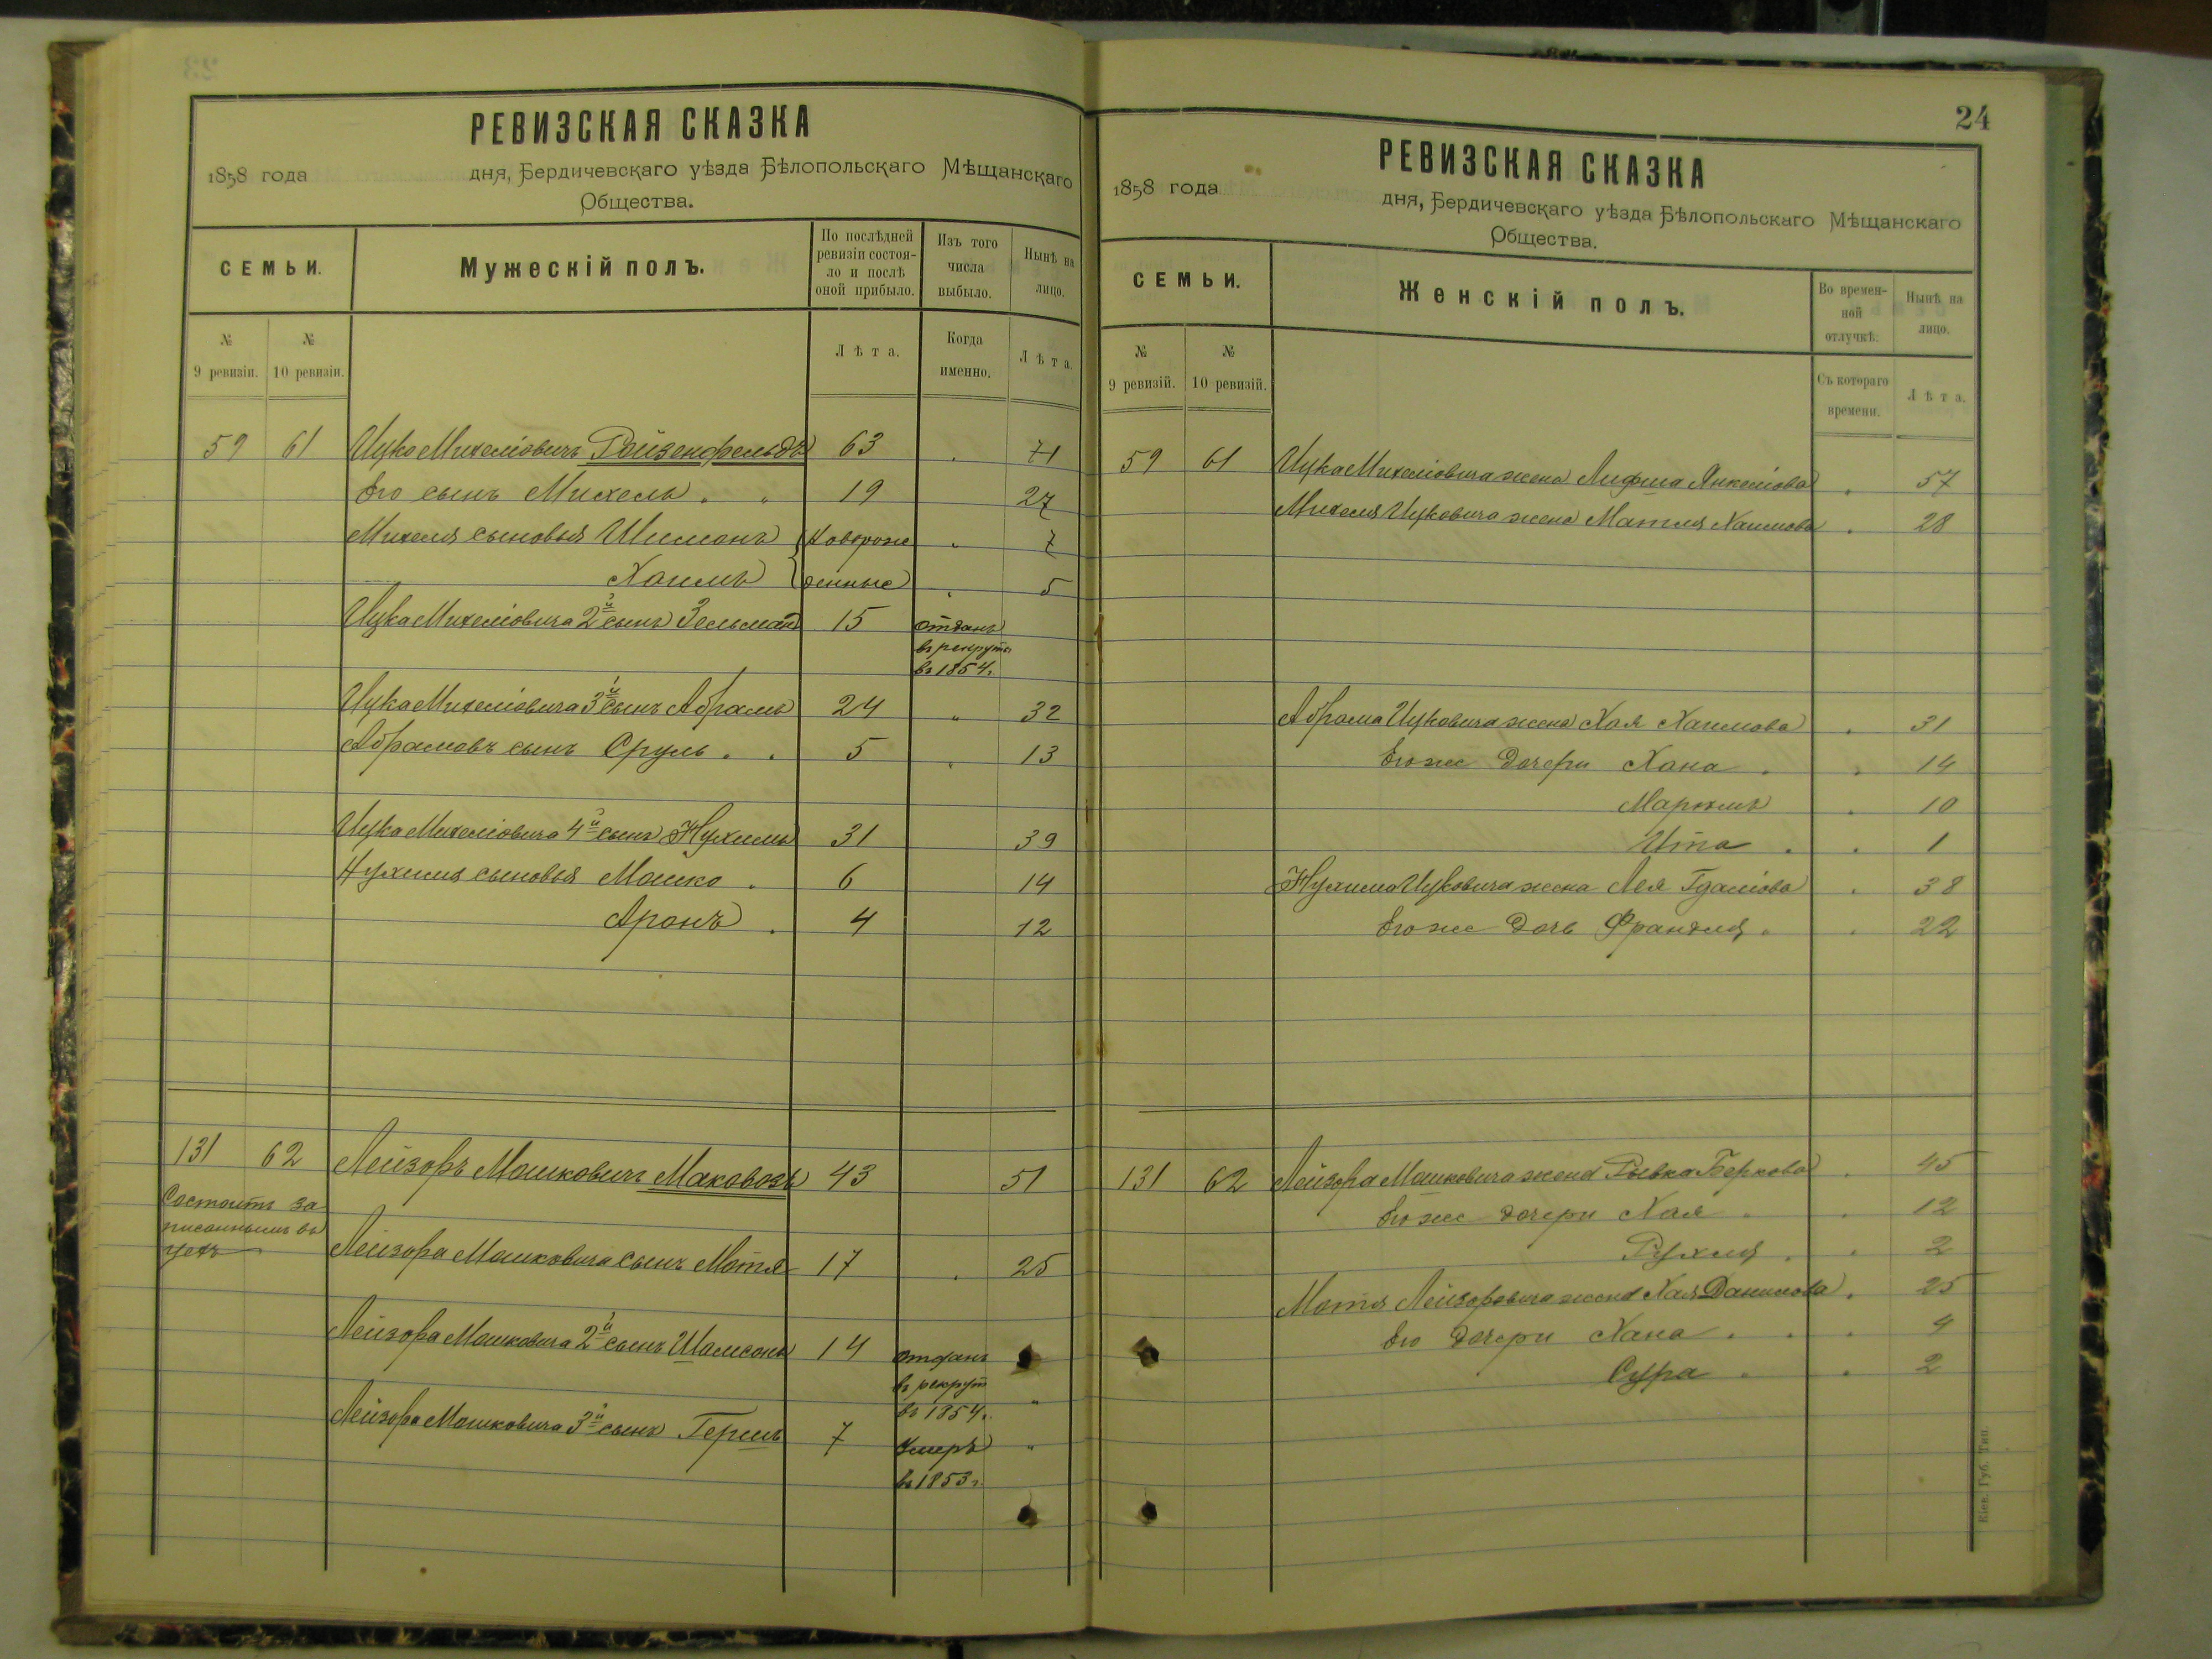 РЕВИЗСКАЯ СКАЗКА
1858 года дня, Бердичевскаго уѣзда Бѣлопольскаго Мѣщанскаго
Общества.
СЕМЬИ.
Мужескій полъ.
По послѣдней ревизіи состояло и послѣ оной прибыло.
Изъ того числа выбыло.
Нынѣ на лицо.
№ 9 ревизіи.
№ 10 ревизіи.
Лѣта.
Когда именно.
Лѣта.
59 61 Ицко Михеліовичъ Ройзенфельдъ 63 71
Его сынъ Михель 19 27
Михеля сыновья Шимонъ Новорож 7
Хаимъ денные 5
Ицка Михеліовича 2й сынъ Зельман 15 отданъ
въ рекруты
въ 1854 г.
Ицка Михеліовича 3й сынъ Абрамъ 24 " 32
Абрамовъ сынъ Сруль 5 13
Ицка Михеліовича 4й сынъ Нухимъ 31 39
Нухима сыновья Мошко 6 14
Аронъ 4 12
131 62 Лейзоръ Мошковичъ Маковозъ 43 51
Состоитъ за
писаннымъ въ
цехъ
Лейзора Мошковича сынъ Мотя 17 25
Лейзора Мошковича 2й сынъ Шамсонъ 14 отданъ
въ рекрут
въ 1854 г. "
Лейзора Мошковича 3й сынъ Гершъ 7 умеръ "
въ 1853 г.
24
РЕВИЗСКАЯ СКАЗКА
1858 года дня, Бердичевскаго уѣзда Бѣлопольскаго Мѣщанскаго
Общества.
СЕМЬИ.
Женскій полъ.
Во временной отлучкѣ.
Нынѣ на лицо.
№ 9 ревизій.
№ 10 ревизій.
Съ котораго времени.
Лѣта.
59 61 Ицка Михеліовича жена Лифша Янкеліова 57
Михеля Ицковича жена Матля Хаимова 28
Абрама Ицковича жена Хая Хаимова 31
Его же дочери Хана 14
Маріямъ 10
Ита 1
Нухима Ицковича жена Лея Гдаліова 38
Его же дочь Франдля 22
131 62 Лейзора Мошковича жена Рывка Беркова 45
Его же дочери Хая 12
Рухля 2
Мотя Лейзоровича жена Хая Данилова 25
Его дочери Хана 4
Сура 2
Кіев. Губ. Тип.